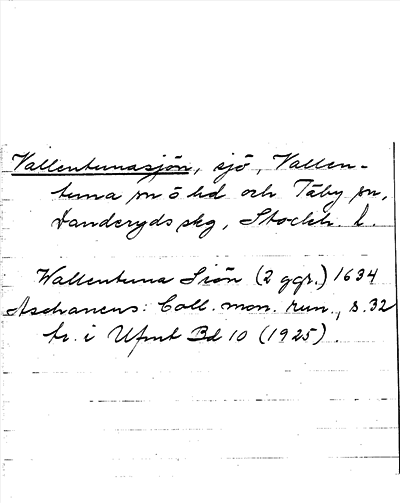 Vallentunasjön, sjö, Vallen-
tuna sn o hd och Täby sn,
Danderyds skg, Stockh. l.
Wallentuna Siön (2 ggr.) 1634
Aschaneus: Coll. mon. run., s. 32
tr. i Ufmt Bd 10 (1925).